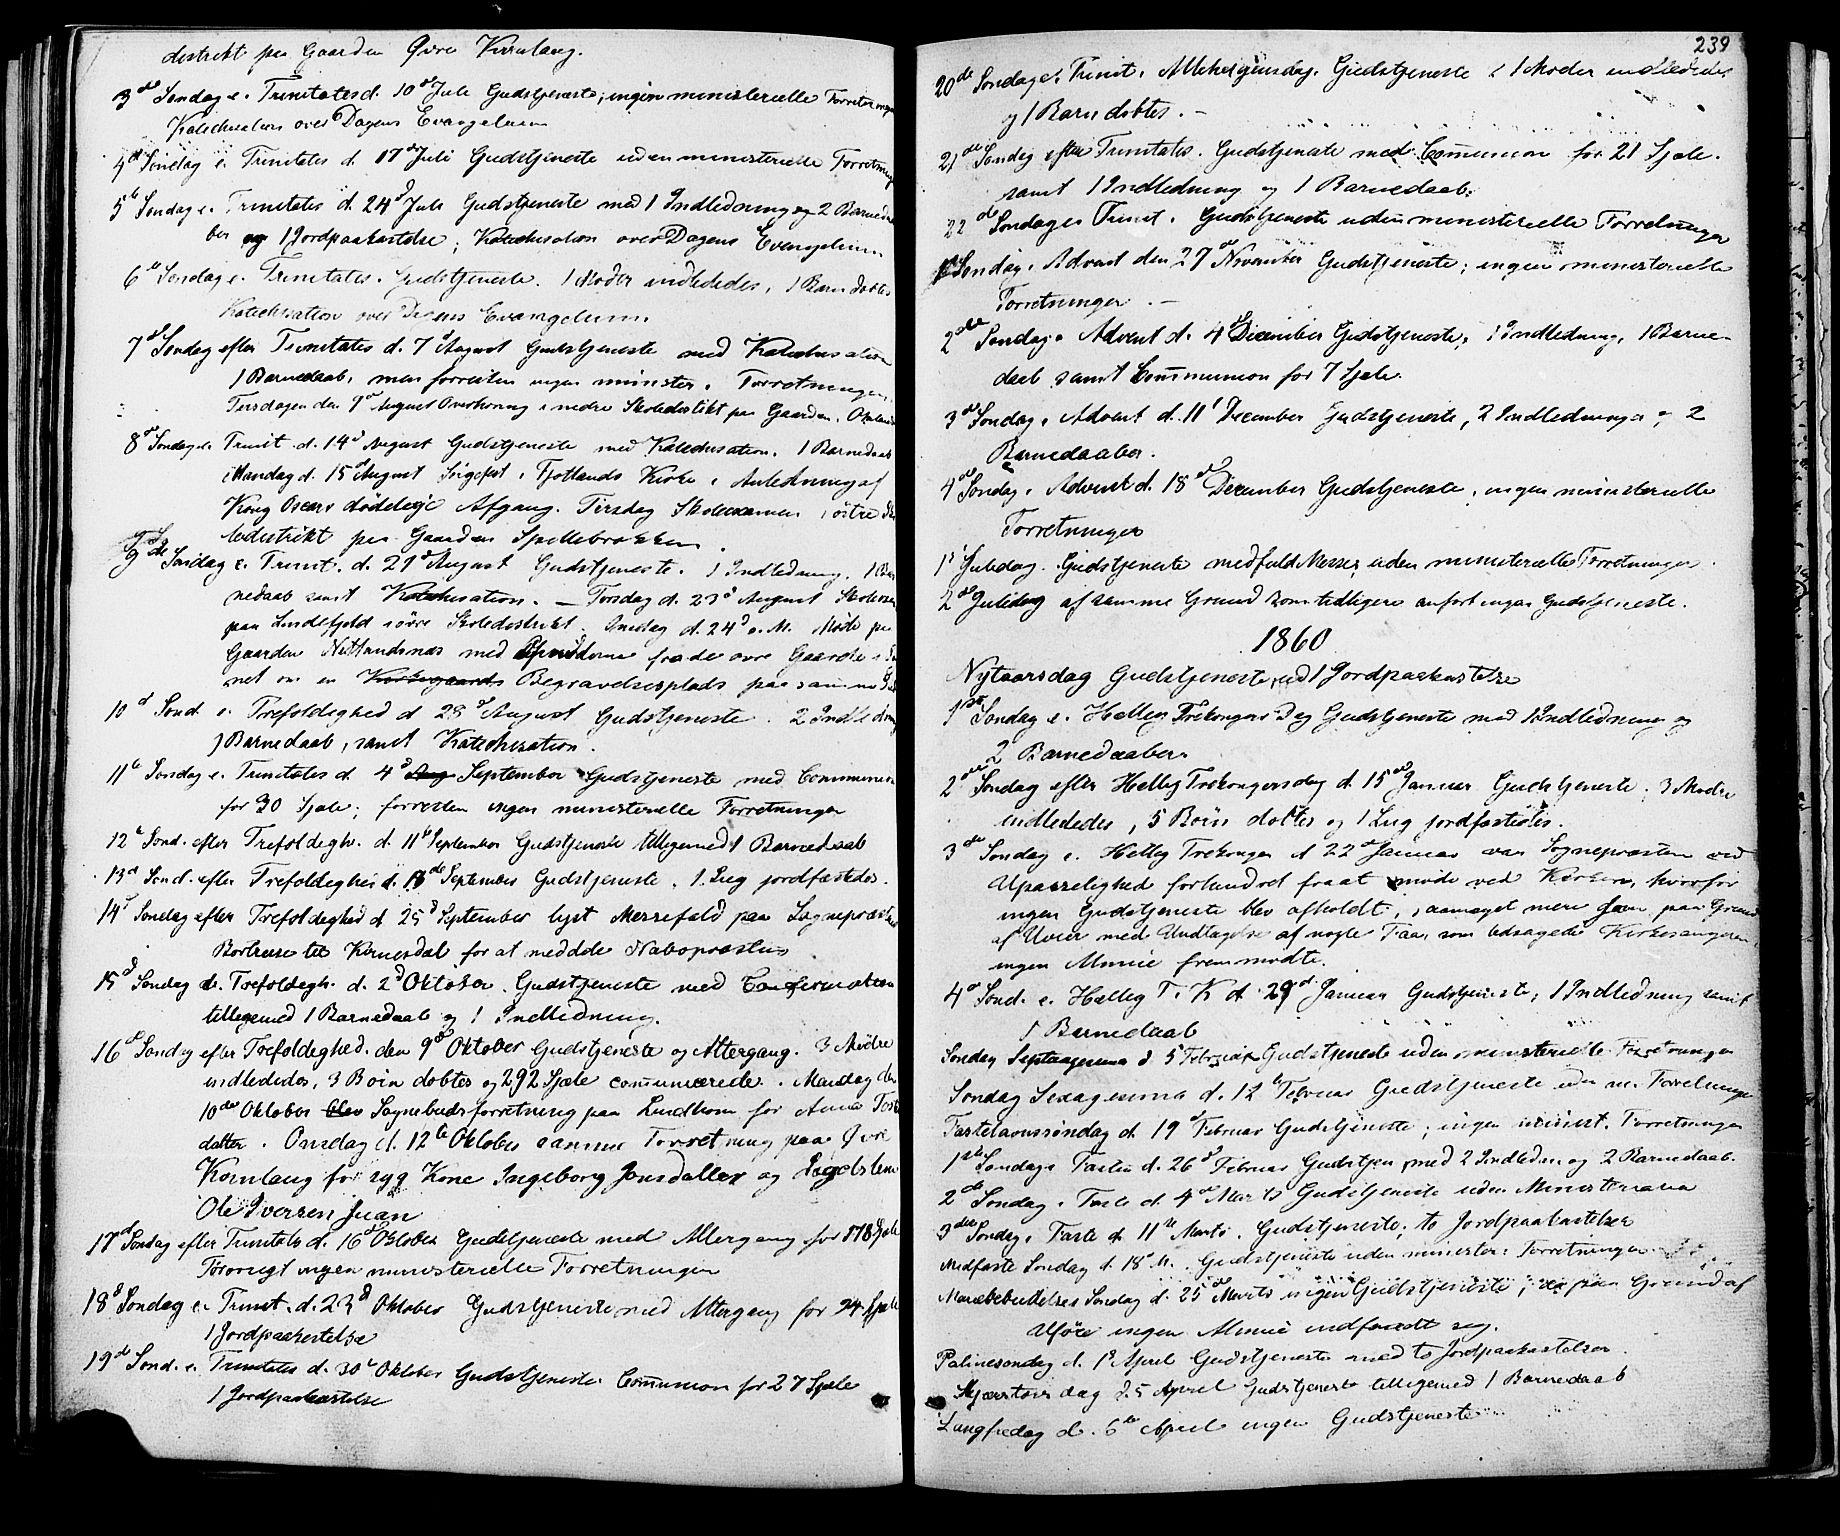 distrikt paa Gaarden Øvre Kornlaug.
3de Søndag e. Trinitatis d. 10de Juli Gudstjeneste; ingen ministerielle Forretninger
Katechisation over Dagens Evangelium
4de Søndag e. Trinitatis d. 17de Juli Gudstjeneste uden ministerielle Forretning
5te Søndag e. Trinitatis d. 24d Juli Gudstjeneste med 1 Indledning og 2 Barneda
ber og 1 Jordpaakastelse; Katechisation over Dagens Evangelium
6te Søndag e. Trinitatis. Gudstjeneste. 1 Moder indlededes, 1 Barn døbtes
Katechisation over Dagens Evangelium.
7de Søndag efter Trinitatis d. 7d August Gudstjeneste med Katechisation
1 Barnedaab, men forresten ingen minister. Forretninger.
Tirsdagen den 9de August Overhøring i nedre Skoledistrikt paa Gaarden
8de Søndag e. Trinit. d. 14d August Gudstjeneste med Katechisation. 1 Barnedaab
Mandag d. 15d August Sørgefest i Fjotlands Kirke i Anledning af
Kong Oscars dødelige Afgang. Tirsdag Skoleexamen i østre Sko
ledistrikt paa Gaarden Spillebrokken.
9de Søndag e. Trinit. d. 21d August Gudstjeneste. 1 Indledning. 1 Bar
nedaab samt Katechisation. — Torsdag d. 23d August Skoleexa
paa Lindefjeld i øvre Skoledistrikt. Onsdag d. 24d s. M. Møde paa
Gaarden Netlandsnes med Opsidderne fra de øvre Gaarde i
net om en Kirkegaards Begravelsesplads paa samme
10d Sond. e. Trefoldighed d 28d August Gudstjeneste. 2 Indledning
1 Barnedaab, samt Katechisation.
11te Søndag e. Trinitatis d. 4d Aug September Gudstjeneste med Communion
for 30 Sjæle; forresten ingen ministerielle Forretninger
12te Sond. efter Trefoldigh. d. 11te September Gudstjeneste tilligemed 1 Barnedaab
13de Sond. efter Trefoldighed d. 18de September Gudstjeneste. 1 Liig jordfæstedes.
14d Søndag efter Trefoldighed d 25d September lyst Messefald paa Sognepræstens
Bortreise til Kvinesdal for at meddele Nabopræsten
15d Søndag e. Trefoldigh. d. 2d Oktober. Gudstjeneste med Confirmation
tilligemed 1 Barnedaab og 1 Indledning.
16de Søndag efter Trefoldighed den 9de Oktober Gudstjeneste og Altergang. 3 Mødre
indlededes, 3 Børn døbtes og 292 Sjæle communicerede. Mandag den
10de Oktober blev Sognebudsforretning paa Lindhom for Anna
datter. Onsdag d. 12te Oktober samme Forretning paa Øvre
Kornlaug for syg Kone Ingeborg Jensdatter og
Ole Iversen Juan
17d Søndag efter Trinitatis d. 16de Oktober Gudstjeneste med Altergang for 178 Sjæle
Forøvrigt ingen ministerielle Forretninger
18d Søndag e. Trinit. d. 23d Oktober Gudstjeneste med Altergang for 94 Sjæle
1 Jordpaakastelse
19de Sond. e. Trinitatis d. 30te Oktober Gudstjeneste. Communion for 27 Sjæle
1 Jordpaakastelse
239
20de Søndag e. Trinit. Allehelgensdag. Gudstjeneste 1 Moder indlededes
og 1 Barn døbtes. —
21de Søndag efter Trinitatis. Gudstjeneste med Communion for 21 Sjæle.
samt 1 Indledning og 1 Barnedaab.
22d Søndag e. Trinit. Gudstjeneste uden ministerielle Forretninger
1ste Søndag i Advent den 27de November Gudstjeneste; ingen ministerielle
Forretninger. —
2den Søndag i Advent d. 4de December Gudstjeneste. 1 Indledning, 1 Barne-
daab samt Communion for 7 Sjæle.
3de Søndag i Advent d. 11te December Gudstjeneste, 2 Indledninger og 2
Barnedaaber.
4de Søndag i Advent d. 18de December Gudstjeneste, ingen ministerielle
Forretninger
1ste Juledag. Gudstjeneste med fuld Messe, uden ministerielle Forretninger.
2de Juledag af samme Grund som tidligere anført ingen Gudstjeneste.
1860
Nytaarsdag Gudstjeneste, ved 1 Jordpaakastelse
1ste Søndag e. Hellig Trekongers Dag Gudstjeneste med 1 Indledning og
2 Barnedaaber.
2den Søndag efter Hellig Trekongersdag d. 15de Januar Gudstjeneste. 3 Mødre
indlededes, 5 Børn døbtes og 1 Liig jordfæstedes.
3de Søndag e. Hellig Trekonger d 22de Januar var Sognepræsten ved
Upasselighed forhindret fra at møde ved Kirken, hvorfor
ingen Gudstjeneste blev afholdt, saameget mere som paa Grund
af Uveir med Undtagelse af nogle Faa, som ledsagede Kirkesangeren,
ingen Almue fremmødte.
4de Sond. e. Hellig T. K d. 29de Januar Gudstjeneste; 1 Indledning samt
1 Barnedaab
Søndag Septuagesima d 5 Februar Gudstjeneste uden ministerielle Forretninger
Søndag Sexagesima d. 12te Februar Gudstjeneste uden m. Forretninger
Fastelavnssøndag d. 19d Februar Gudstjeneste; ingen minist. Forretninger
1ste Søndag i Fasten d. 26d Februar Gudstjen. med 2 Indledn. og 2 Barnedaab.
2de Søndag i Faste d. 4de Marts Gudstjeneste uden Ministerialia
3die Søndag i Faste d. 11te Marts. Gudstjeneste; to Jordpaakastelser
Midfaste Søndag d. 18 M. Gudstjeneste uden minister. Forretninger
Mariæbebudelses Søndag d. 25de Marts ingen Gudstjeneste; da paa Grund af
Uføre ingen Almue indfandt sig.
Palmesøndag d. 1ste April Gudstjeneste med to Jordpaakastelser.
Skjærtorsdag d. 5 April Gudstjeneste tilligemed 1 Barnedaab
Langfredag d. 6te April ingen Gudstjeneste